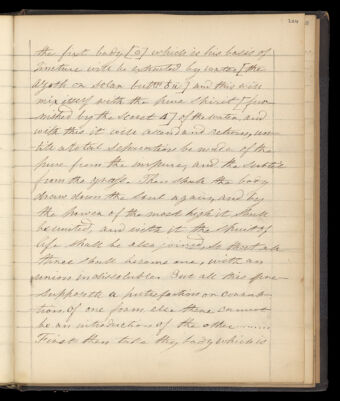 the first body [☉] which is his basis of
tincture will be extracted by water [the
Azoth or Solar] and this will
mix itself with the pure Spirit
by the Secret of the water and
with this it will ascend and return, un-
till a total seperation be made of the
pure from the impure, and the subtil
from the gross. Then shall the body
draw down the Soul again, and by
the power of the most high it shall
be united, and with it the Spirit of
life shall be also joined, so that all
three shall become one, with an
union indissoluble. But all this pre-
supposeth a putrefaction or corrup-
tion of one form else there cannot
be an introduction of the other
First then take thy body which is